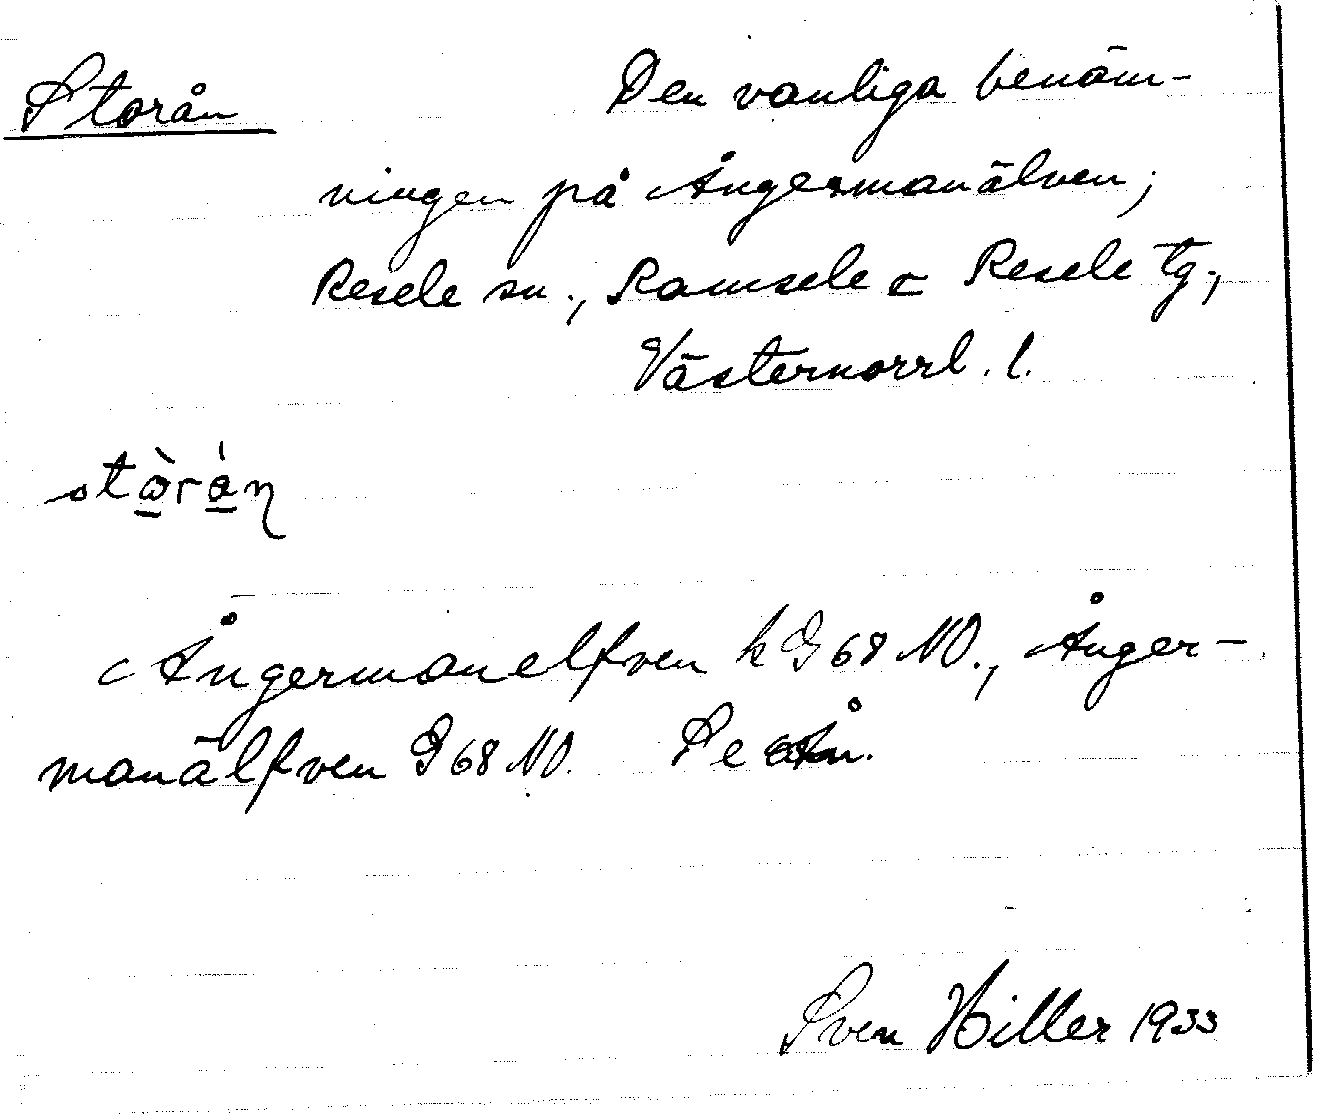 Storån Den vanliga benäm-
ningen på Ångermanälven;
Resele sn., Ramsele o Resele tg.,
Västernorrl. l.
stò̠rǻ̠n
Ångermanelfven k G 68 NO., Ånger-
manälfven G 68 NO. Se
Sven Hiller 1933